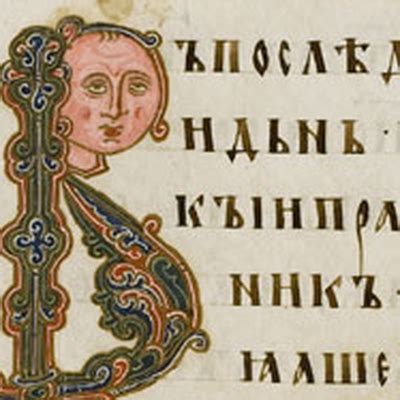 Въпослѣд
ньдьнь·
кꙑинпра
никъ·
ꙗаше